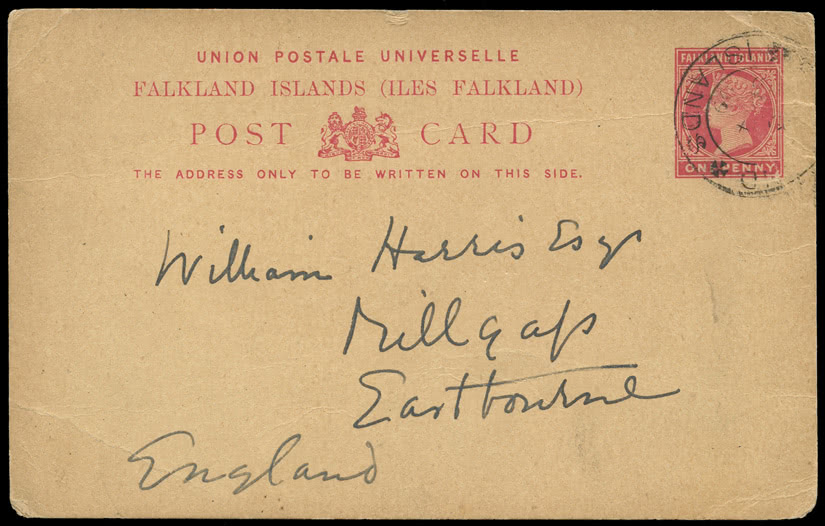 UNION POSTALE UNIVERSELLE
FALKLAND ISLANDS (ILES FALKLAND)
POST CARD
THE ADDRESS ONLY TO BE WRITTEN ON THIS SIDE.
FALKLAND ISLANDS
ONE PENNY
ISLANDS
William Harris Esqr
Millgap
Eastbourne
England